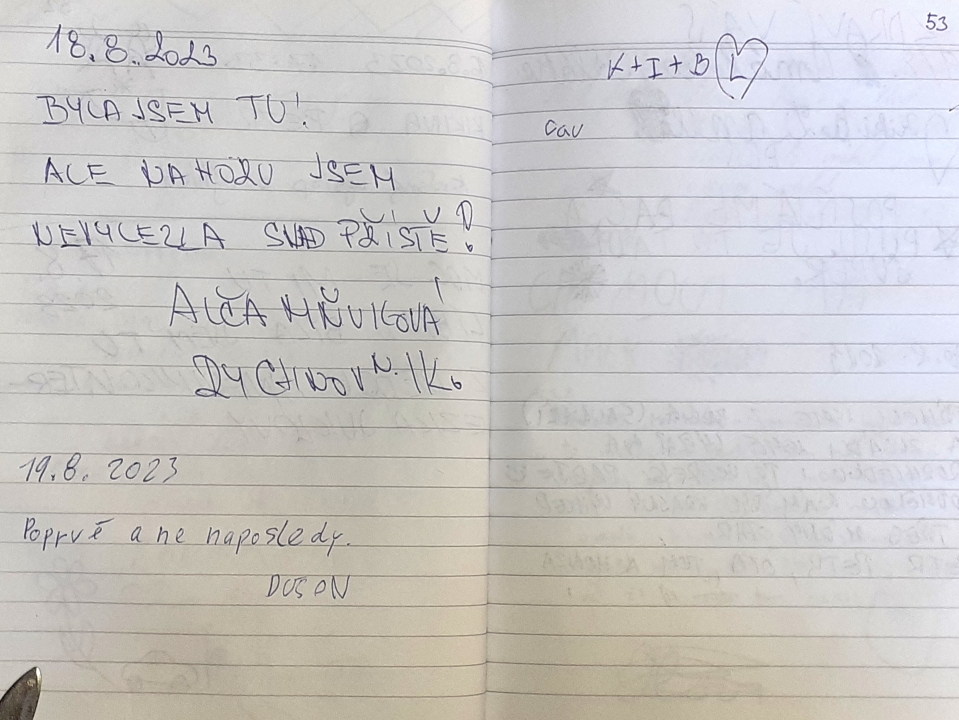 18.8.2023
BYLA JSEM TU!
ALE NAHORU JSEM
NEVYLEZLA SNAD PŘÍŠTĚ!
ALČA MŇUKOVÁ
RYCHNOV N. K.
19.8. 2023
Poprvé a ne naposledy.
DUSON
53
K+I+B L
čau